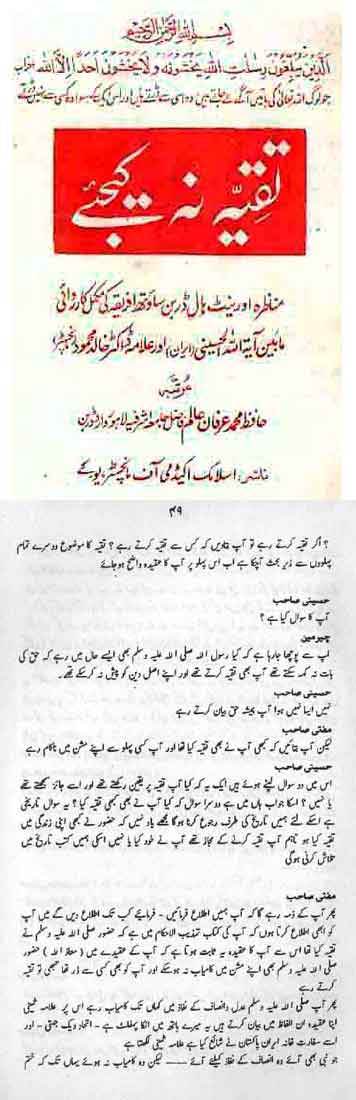 بسم الله الرحمن الرحيم
الذين يبلغون رسلت الله يخشونه ولا يخشون احدا الا الله
جو لوگ اللہ تعالیٰ کی باتیں آگے لے جاتے ہیں وہ اسی سے ڈرتے ہیں اور اس ایک کے سوا وہ کسی سے نہیں ڈرتے
تقیہ نہ کیجئے
مناظرہ اورینٹ ہال ڈربن ساؤتھ افریقہ کی مکمل کارروائی
مابین آیۃ اللہ الحسینی (ایران) اور علامہ ڈاکٹر خالد محمود مانچسٹر
مرتبہ
حافظ محمد عرفان عالم فاضل جامعہ اشرفیہ لاہور وارد ڈربن
ناشر: اسلامک اکیڈمی آف مانچسٹر یو کے
۴۹
؟ اگر تقیہ کرتے رہے تو آپ بتادیں کہ کس سے تقیہ کرتے رہے؟ تقیہ کا موضوع دوسرے تمام
پہلوؤں سے زیر بحث آچکا ہے اب اس پہلو پر آپ کا عقیدہ واضح ہو جائے
حسینی صاحب
آپ کا سوال کیا ہے ؟
چیرمین
آپ سے پوچھا جارہا ہے کہ کیا رسول اللہ صلی اللہ علیہ وسلم بھی ایسے حال میں رہے کہ حق کی
بات نہ کہہ سکتے تھے آپ بھی تقیہ کرتے تھے اور اپنے اصل دین کو پیش نہ کرسکے تھے۔
حسینی صاحب
نہیں ایسا نہیں ہوا آپ ہمیشہ حق بیان کرتے رہے
مفتی صاحب
لیکن آپ بتائیں کہ کبھی آپ نے بھی تقیہ کیا تھا اور آپ کسی پہلو سے اپنے مشن میں ناکام رہے
حسینی صاحب
اس میں دو سوال لپٹے ہوئے ہیں ایک یہ کہ کیا آپ تقیہ پر یقین رکھتے تھے اور اسے جائز سمجھتے تھے
یا نہیں ؟ اسکا جواب ہاں میں ہے دوسرا سوال کہ کیا آپ نے بھی کبھی تقیہ کیا ؟ یہ سوال تاریخی
ہے اسکے لئے ہمیں تاریخ کی طرف رجوع کرنا ہوگا مجھے یاد نہیں کہ حضور نے کبھی اپنی زندگی میں
تقیہ کیا ہو تاہم آپ تقیہ کرنے کے مجاز تھے آپ نے خود کیا یا نہیں اسکی ہمیں کتب تاریخ میں
تلاش کرنی ہوگی
مفتی صاحب
پھر آپ کے ذمہ رہے گا کہ آپ ہمیں اطلاع فرمائیں - فرمایئے کب تک اطلاع دیں گے میں آپ
کو ابھی اطلاع کرتا ہوں کہ آپ کی کتاب تہذیب الاحکام میں ہے کہ حضور صلی اللہ علیہ وسلم نے
تقیہ کیا تھا اس سے آپ کا عقیدہ یہ ثابت ہوتا ہے کہ آپ کے عقیدے میں (معاذ اللہ) حضور
صلی اللہ علیہ وسلم بھی اپنے مشن میں کامیاب نہ ہوسکے اور آپ کو بھی کسی سے ڈر تھا تبھی تو تقیہ
کرتے رہے
پھر آپ صلی اللہ علیہ وسلم عدل و انصاف کے نفاذ میں کہاں تک کامیاب رہے اس پر علامہ خمینی
اپنا عقیدہ ان الفاظ میں بیان کرتے ہیں یہ میرے ہاتھ میں انکا پمفلٹ ہے - اتحاد و یک جہتی - اور
اسے سفارت خانہ ایران پاکستان نے شائع کیا ہے علامہ خمینی لکھتا ہے
جو نبی بھی آئے وہ انصاف کے نفاذ کیلئے آئے ---- لیکن وہ کامیاب نہ ہوئے یہاں تک کہ ختم